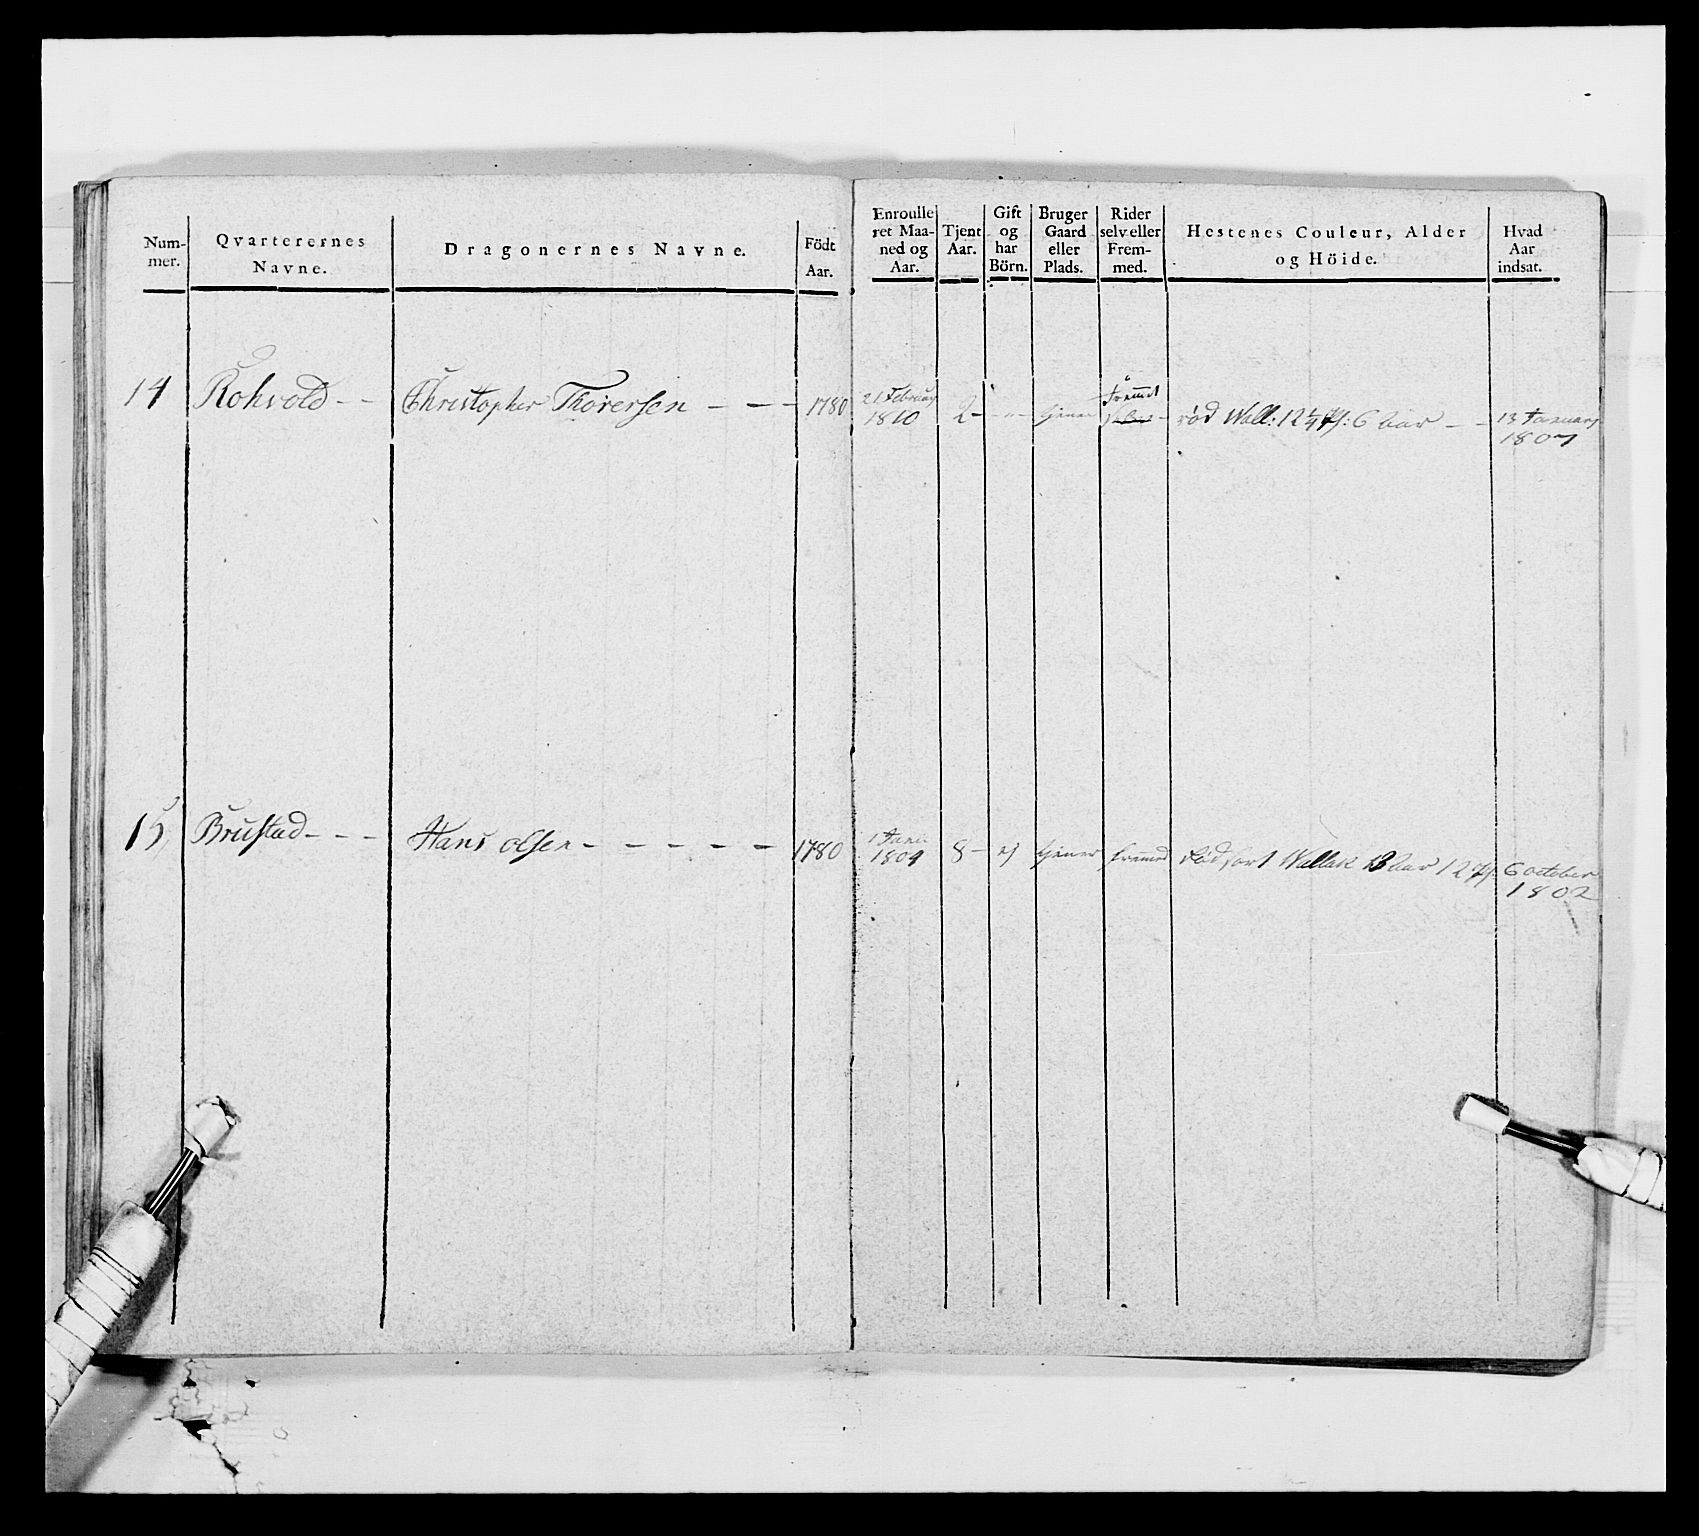 Num-
mer.
Qvarterernes
Navne.
Dragonernes Navne.
Födt
Aar.
Enroulle
ret Maa-
ned og
Aar.
Tjent
Aar.
Gift
og
har
Börn.
Bruger
Gaard
eller
Plads.
Rider
selv eller
Frem-
med.
Hestenes Couleur, Alder
og Höide.
Hvad
Aar
indsat.
14 Rohvold - - Christopher Thorersen - - - 1780
21 Februar
1810
2 - - " - tjener
Fremet
rød Wall: 12 1/4 Qf: 6 aar - -
13 Januarj
1807
15, Brustad - - - Hans olsen - - - - - 1780
1 Janu:
1804
8 - ej tjener fremed Rødsort Wallak 13 Aar 12 Qf:
6 october
1802